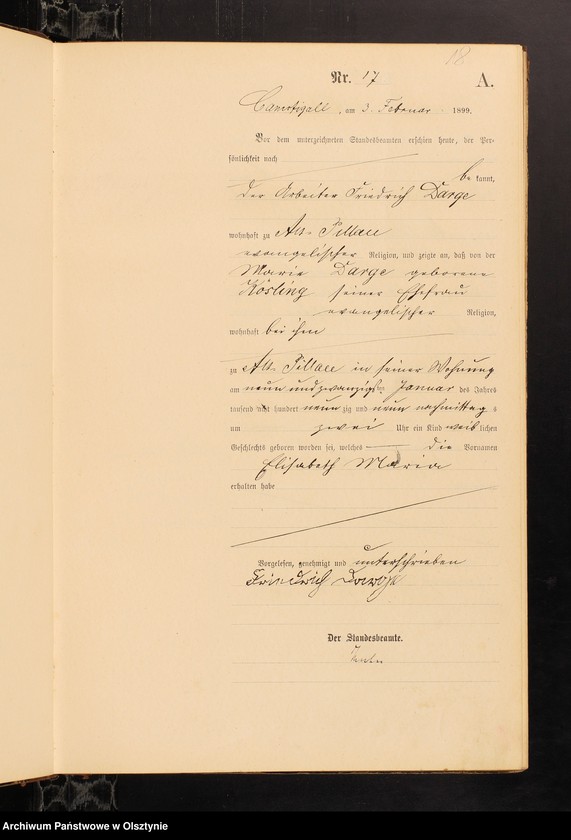 18
Nr. 17
A.
Camstigall, am 3. Februar 1899.
Vor dem unterzeichneten Standesbeamten erschien heute, der Per-
sönlichkeit nach
bekannt,
der Arbeiter Friedrich Darge
wohnhaft zu Alt-Pillau
evangelischer Religion, und zeigte an, daß von der
Marie Darge geborene
Kösling seiner Ehefrau
evangelischer Religion,
wohnhaft bei ihm
zu Alt-Pillau in seiner Wohnung
am neun und zwanzigsten Januar des Jahres
tausend acht hundert neunzig und neun nachmittags
um zwei Uhr ein Kind weiblichen
Geschlechts geboren worden sei, welches die Vornamen
Elisabeth Maria
erhalten habe
Vorgelesen, genehmigt und unterschrieben
Friedrich Darge
Der Standesbeamte.
Archiwum Państwowe w Olsztynie